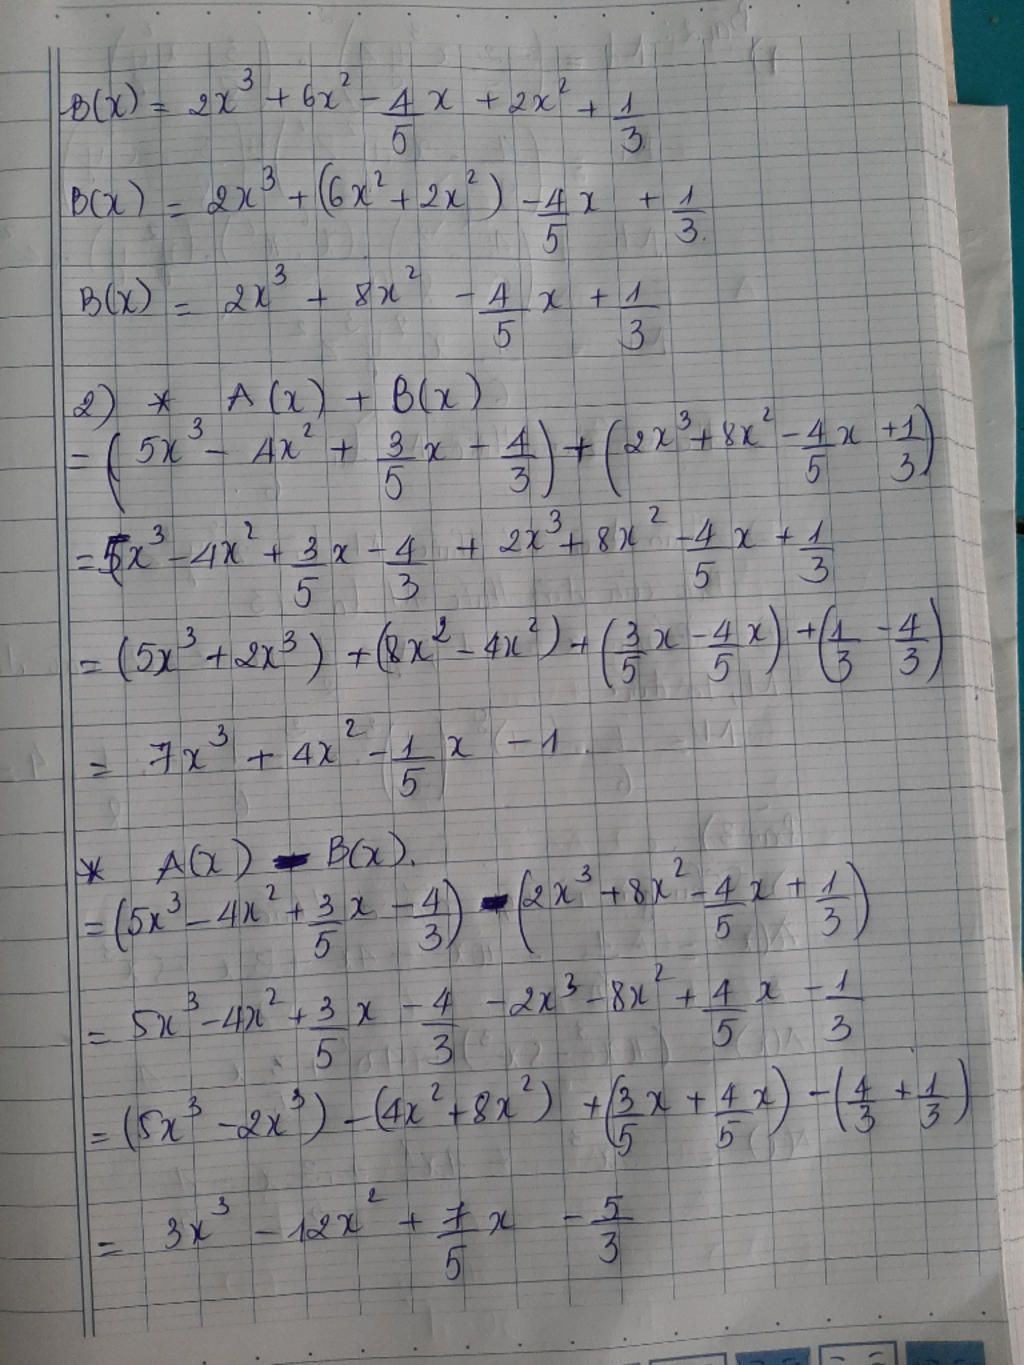 B(x) = 2x³ + 6x² - 4/5 x + 2x² + 1/3
B(x) = 2x³ + (6x² + 2x²) - 4/5 x + 1/3
B(x) = 2x³ + 8x² - 4/5 x + 1/3
2) * A(x) + B(x)
= (5x³ - 4x² + 3/5 x - 4/3) + (2x³ + 8x² - 4/5 x + 1/3)
= 5x³ - 4x² + 3/5 x - 4/3 + 2x³ + 8x² - 4/5 x + 1/3
= (5x³ + 2x³) + (8x² - 4x²) + (3/5 x - 4/5 x) + (1/3 - 4/3)
= 7x³ + 4x² - 1/5 x - 1
* A(x) - B(x).
= (5x³ - 4x² + 3/5 x - 4/3) - (2x³ + 8x² - 4/5 x + 1/3)
= 5x³ - 4x² + 3/5 x - 4/3 - 2x³ - 8x² + 4/5 x - 1/3
= (5x³ - 2x³) - (4x² + 8x²) + (3/5 x + 4/5 x) - (4/3 + 1/3)
= 3x³ - 12x² + 7/5 x - 5/3